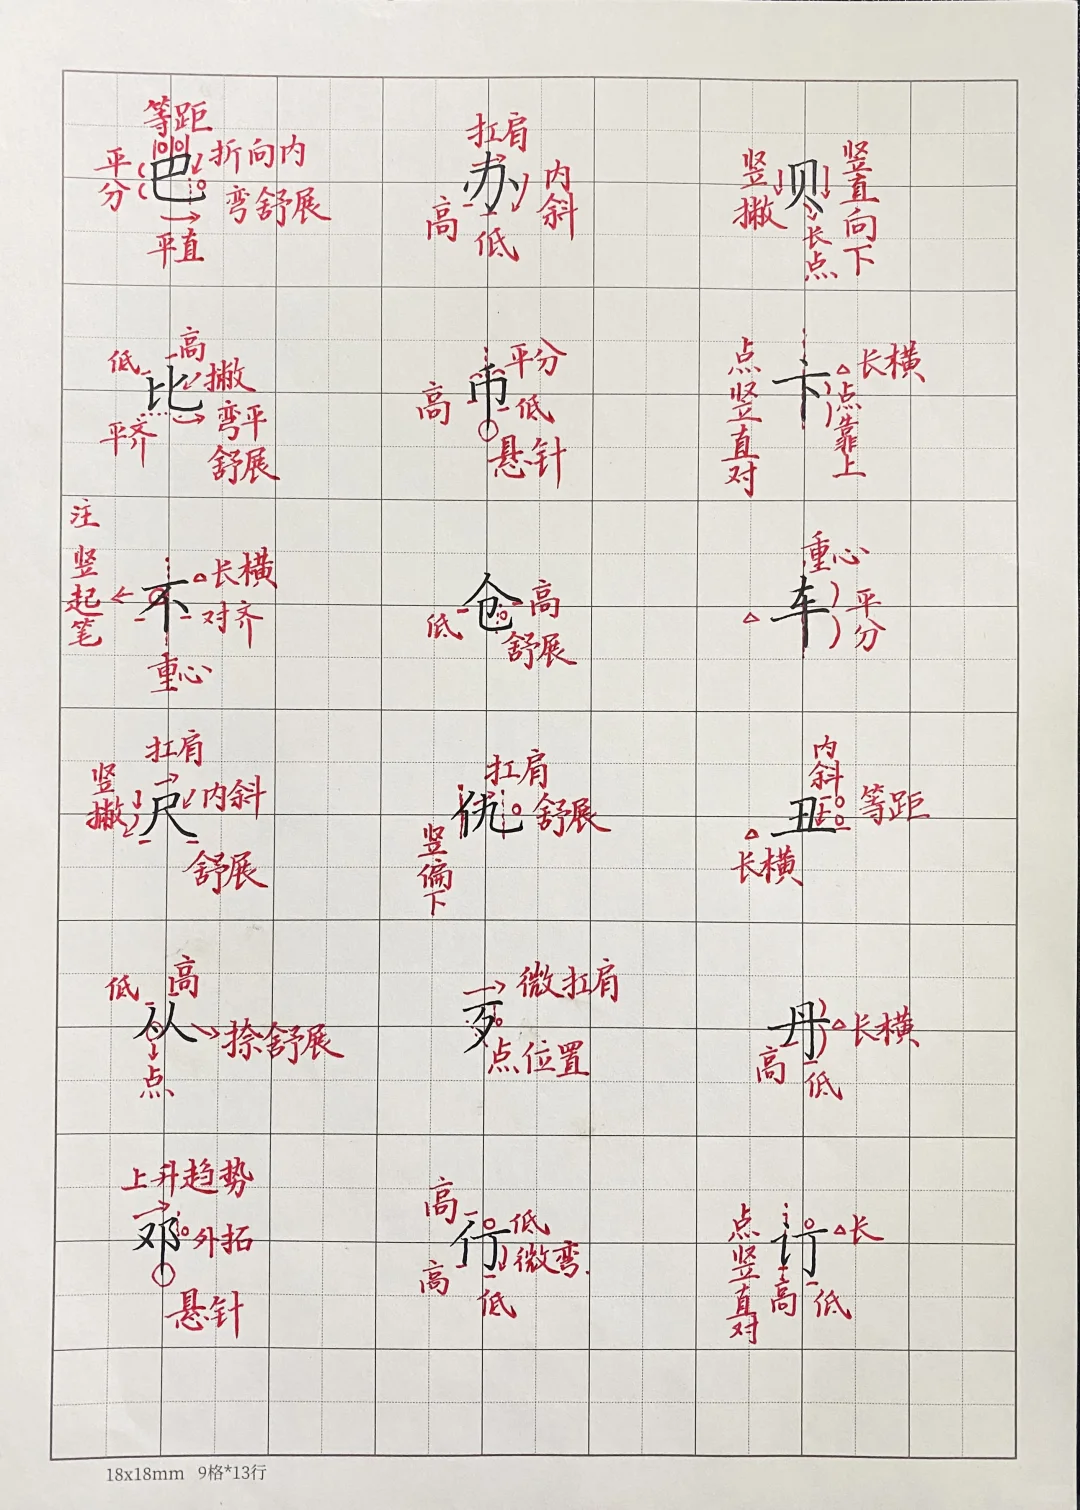 等距
平分
巴
折向内
弯舒展
平直
扛肩
办
内斜
高
低
竖撇
贝
竖直向下
长点
低
高
比
撇
弯平
舒展
平齐
平分
高
币
低
悬针
点竖直对
卞
长横
点靠上
注
竖起笔
不
长横
对齐
重心
仓
高
低
舒展
重心
车
平分
扛肩
竖撇
尺
内斜
舒展
扛肩
优
舒展
竖偏下
内斜
丑
等距
长横
低
高
从
捺舒展
点
微扛肩
歹
点位置
丹
长横
高
低
上升趋势
邓
外拓
悬针
高
行
低
微弯
高
低
点竖直对
讦
长
高
低
18x18mm 9格*13行